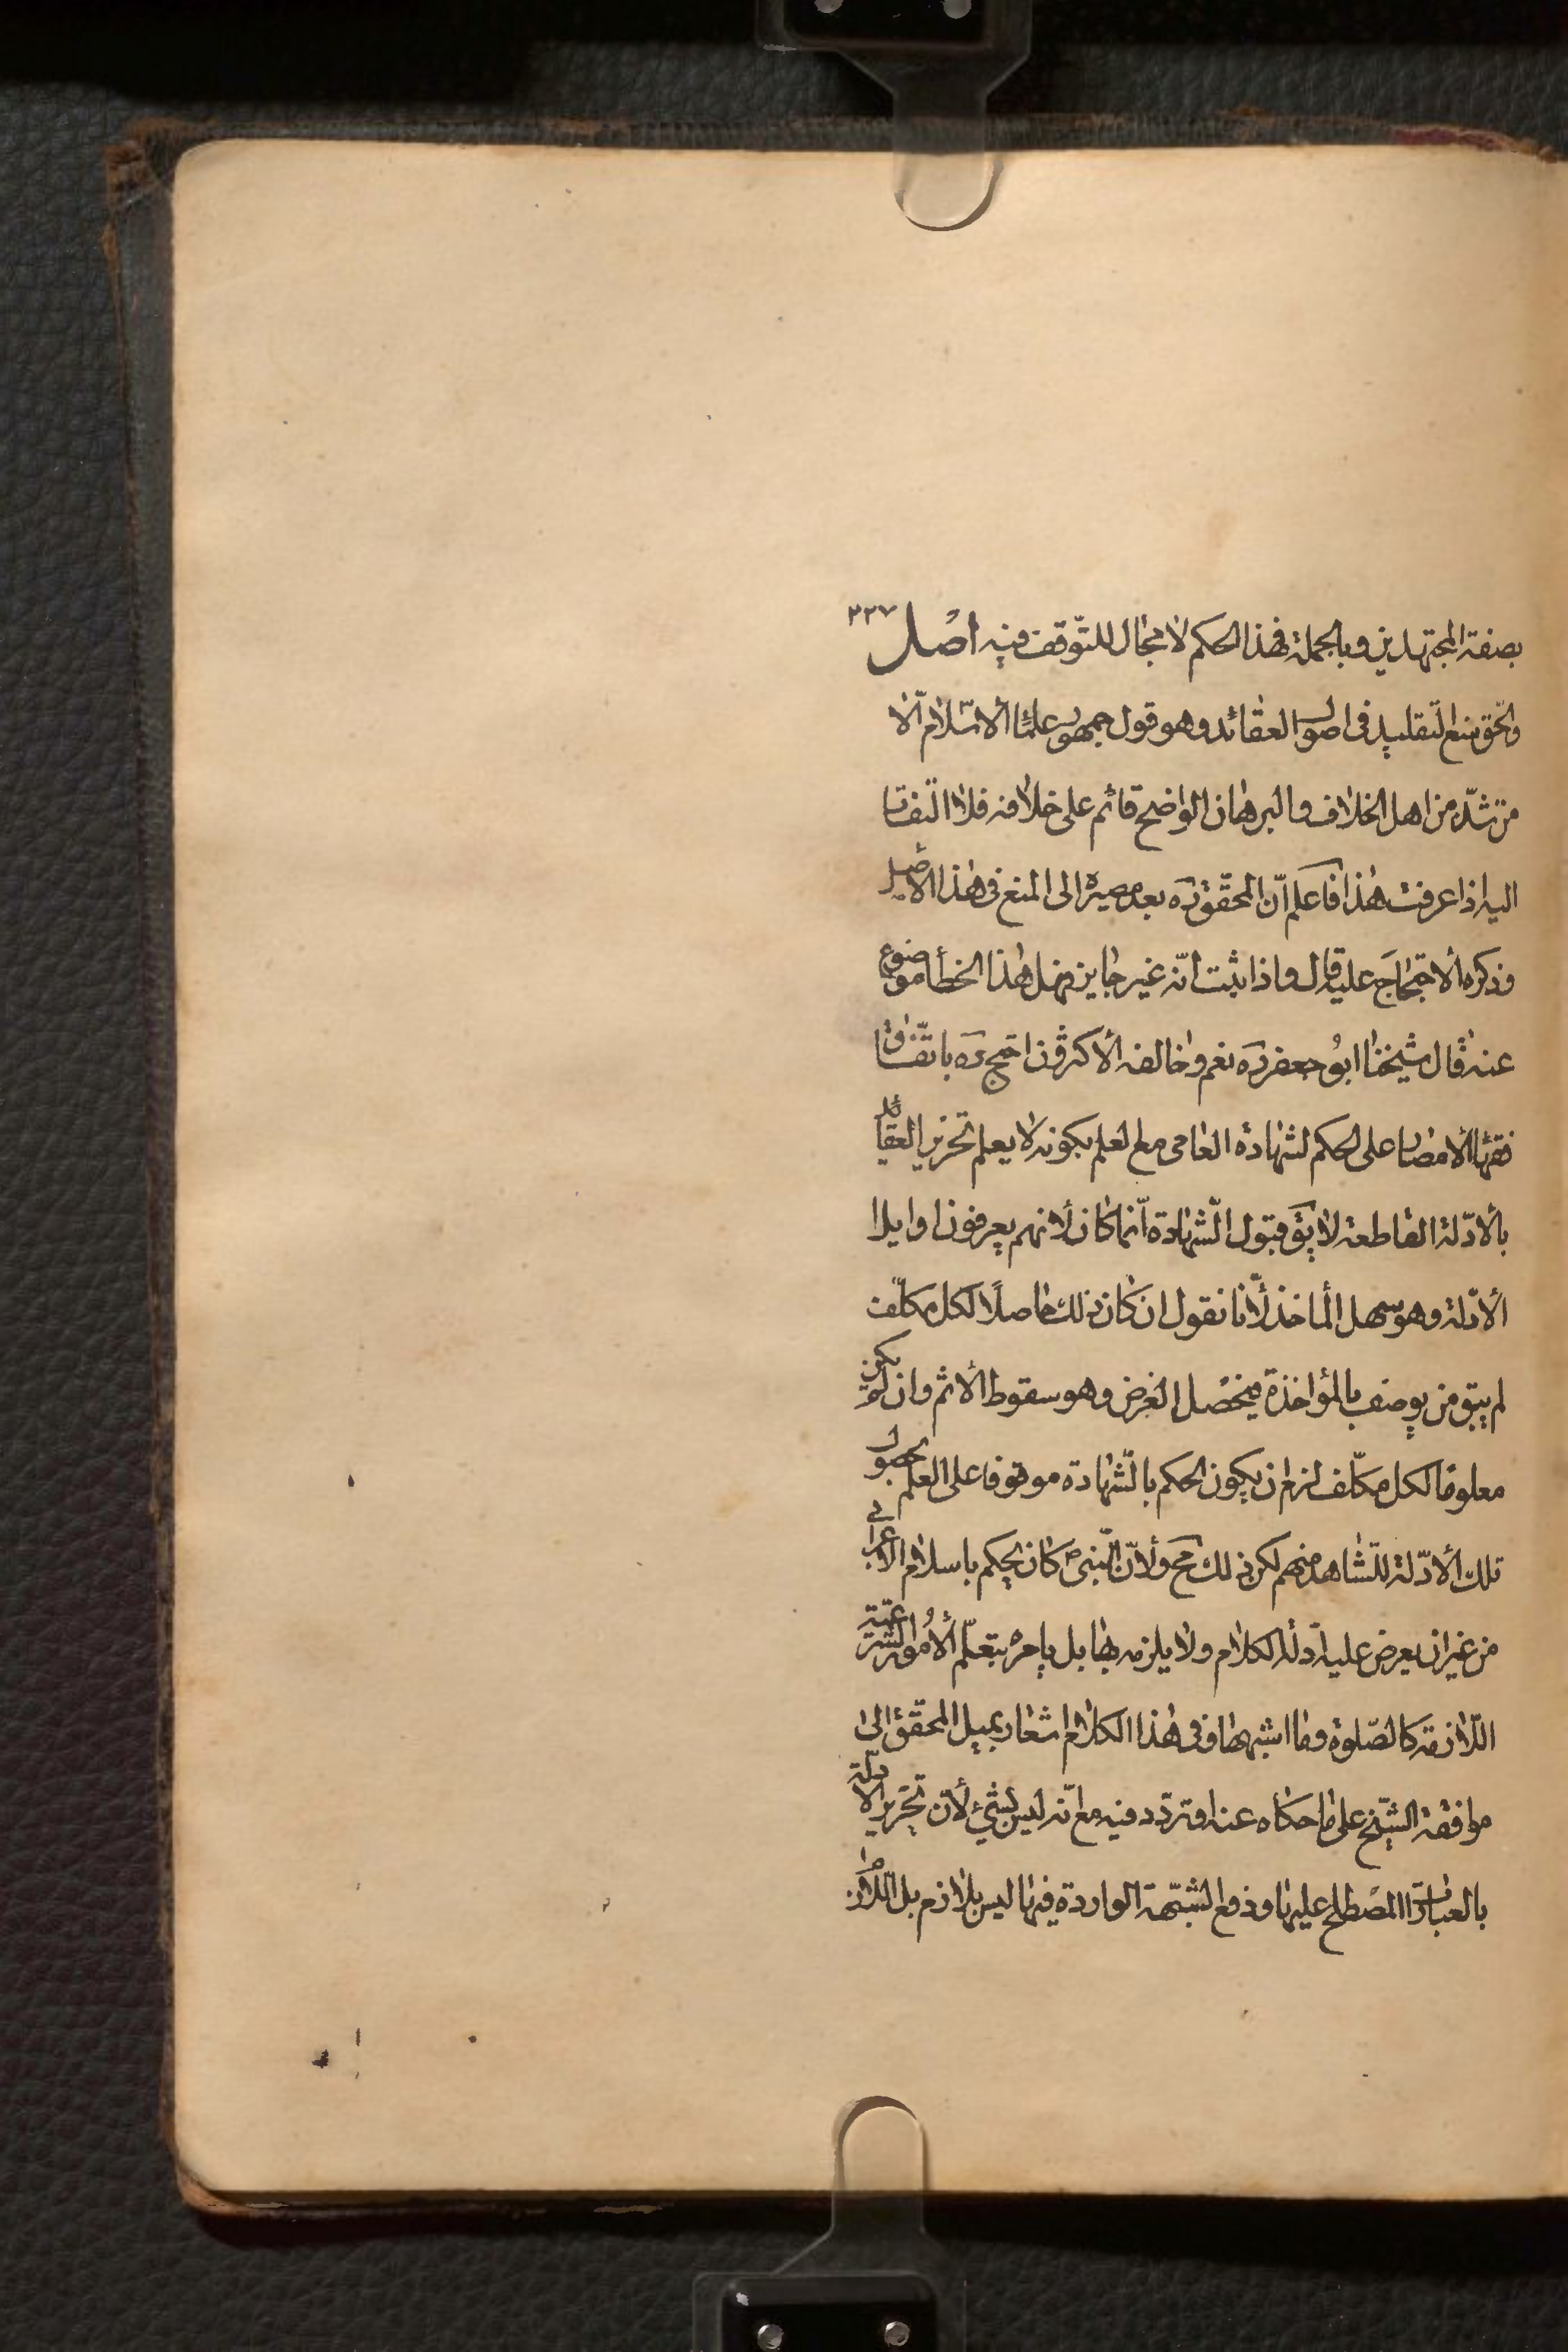 ٣٢٧
بصفة المجتهدين وبالجملة فهذا الحكم لا مجال للتوقف فيه اصل
والحق منع التقليد في اصول العقائد وهو قول جمهور علماء الاسلام الا
من شذ من اهل الخلاف والبرهان الواضح قائم على خلافه فلا التفات
اليه اذا عرفت هذا فاعلم ان المحقق ره بعد مصيره الى المنع في هذا الاصل
وذكره الاحتجاج عليه قال واذا ثبت انه غير جايز فهل هذا الخطأ موضوع
عنه قال شيخنا ابو جعفر ره نعم وخالفه الاكثرون احتج ره باتفاق
فقهاء الامصار على الحكم لشهادة العامى مع العلم بكونه لا يعلم تحرير العقائد
بالادلة القاطعة لا يق قبول الشهادة انما كان لانهم يعرفون اوايل
الادلة وهو سهل المأخذ لانا نقول ان كان ذلك حاصلا لكل مكلف
لم يبق من يوصف بالمؤاخذة فيحصل الغرض وهو سقوط الاثم وان لم يكن
معلوما لكل مكلف لزم ان يكون الحكم بالشهادة موقوفا على العلم بحصول
تلك الادلة للشاهد منهم لكن ذلك مح ولان النبي ص كان يحكم باسلام الاعرابي
من غير ان يعرض عليه ادلة الكلام ولا يلزمه بها بل يامره بتعلم الامور الشرعية
اللازمة كالصلوة وما اشبهها وفى هذا الكلام اشعار بميل المحقق الى
موافقة الشيخ على ما حكاه عنه او تردد فيه مع انه ليس بشئ لان تحرير الادلة
بالعبارات المصطلح عليها ودفع الشبهة الواردة فيها ليس بلازم بل اللازم